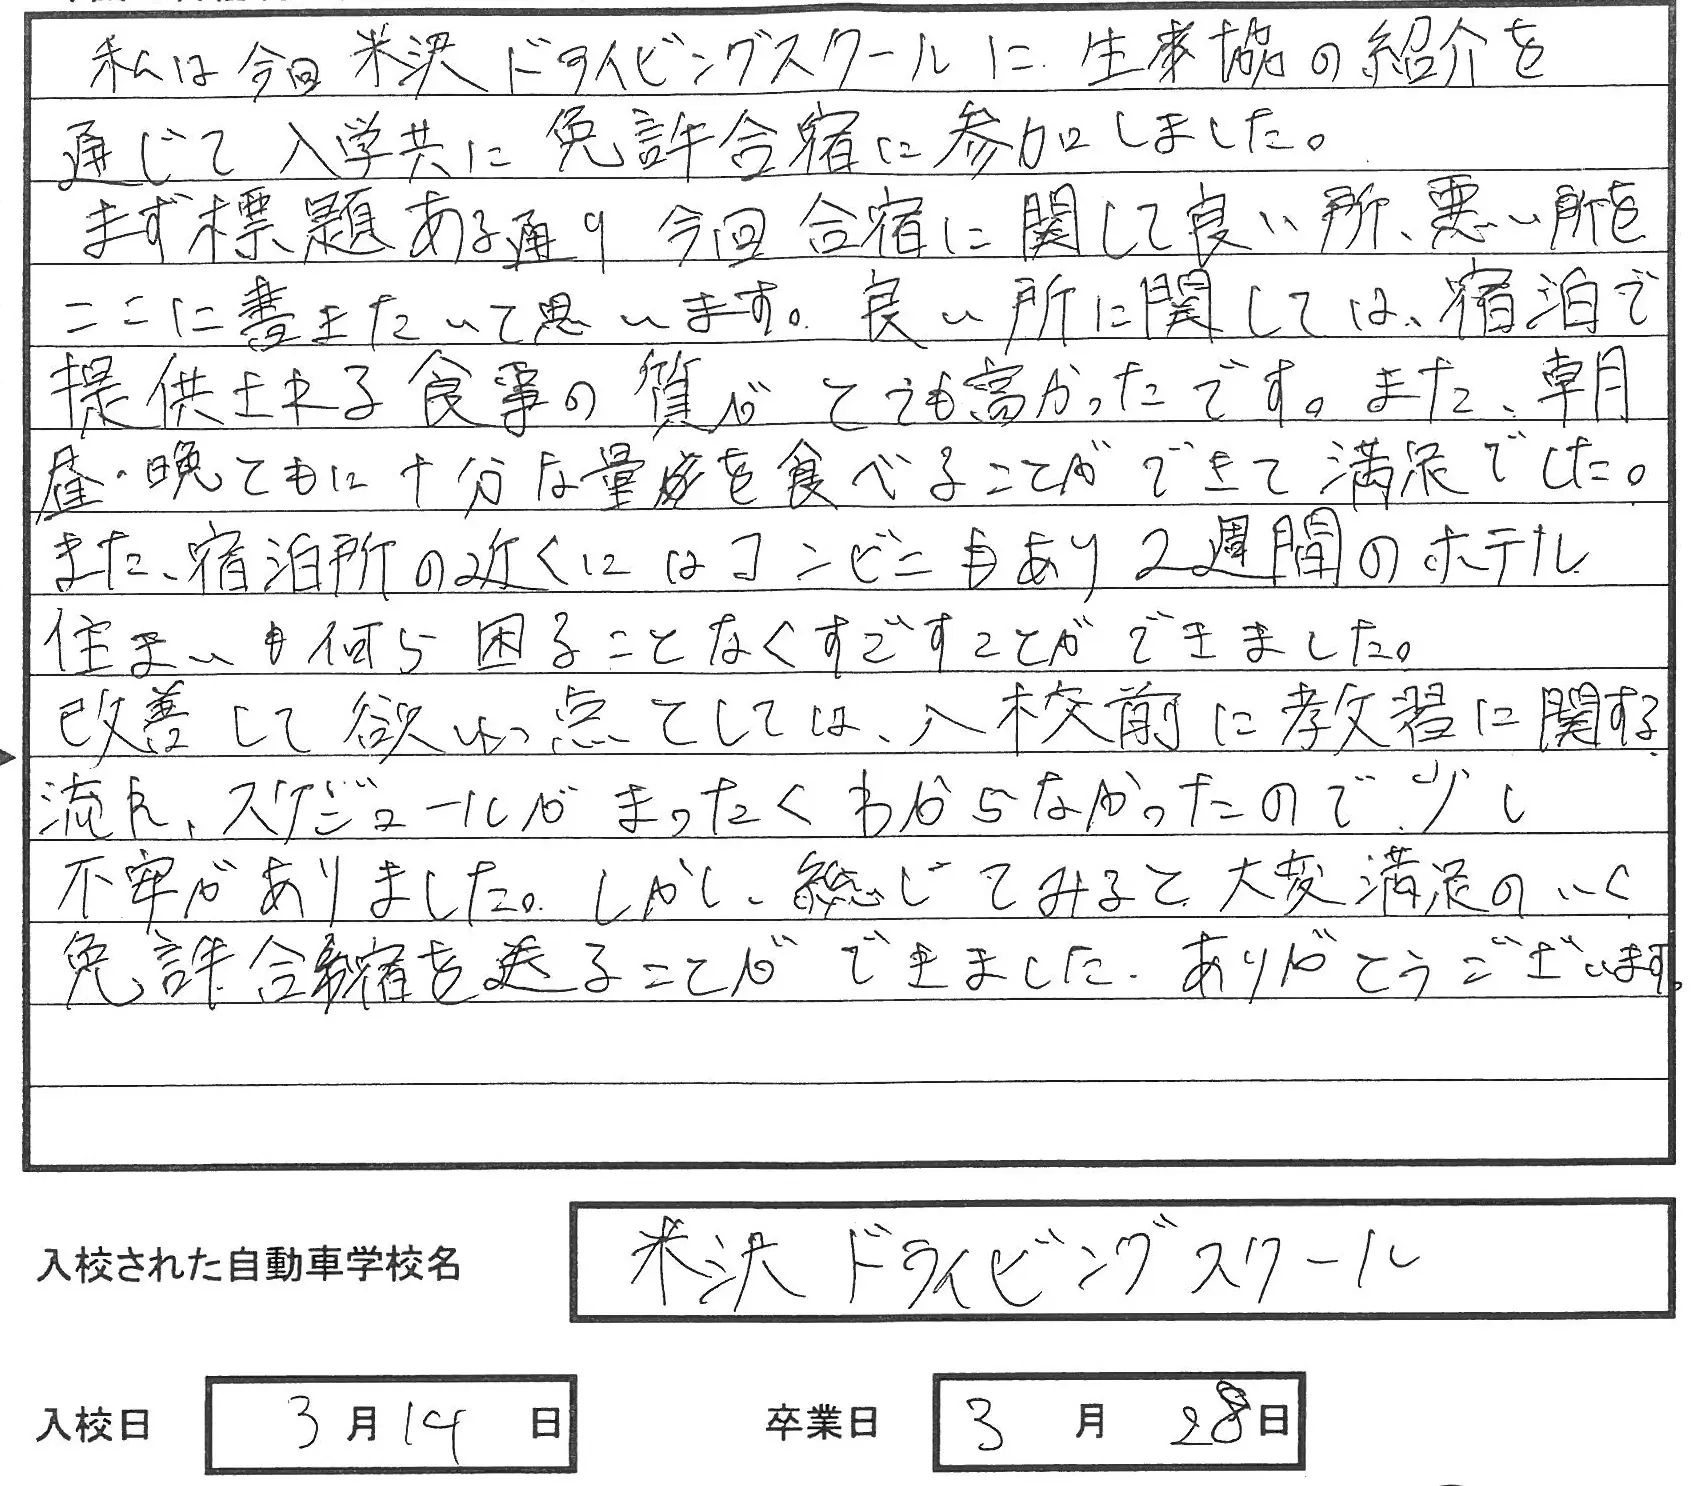 私は今回米沢ドライビングスクールに生協の紹介を
通じて入学共に免許合宿に参加しました。
まず標題ある通り今回合宿に関して良い所、悪い所を
ここに書きたいて思います。良い所に関しては、宿泊で
提供される食事の質がとても高かったです。また、朝
昼・晩ともに十分な量を食べることができて満足でした。
また、宿泊所の近くにはコンビニもあり2週間のホテル
住まいも何ら困ることなくすごすことができました。
改善して欲しい点としては、入校前に教習に関する
流れ、スケジュールがまったくわからなかったので少し
不安がありました。しかし、総じてみると大変満足のいく
免許合宿を送ることができました。ありがとうございます。
入校された自動車学校名 米沢ドライビングスクール
入校日 3月14日 卒業日 3月28日